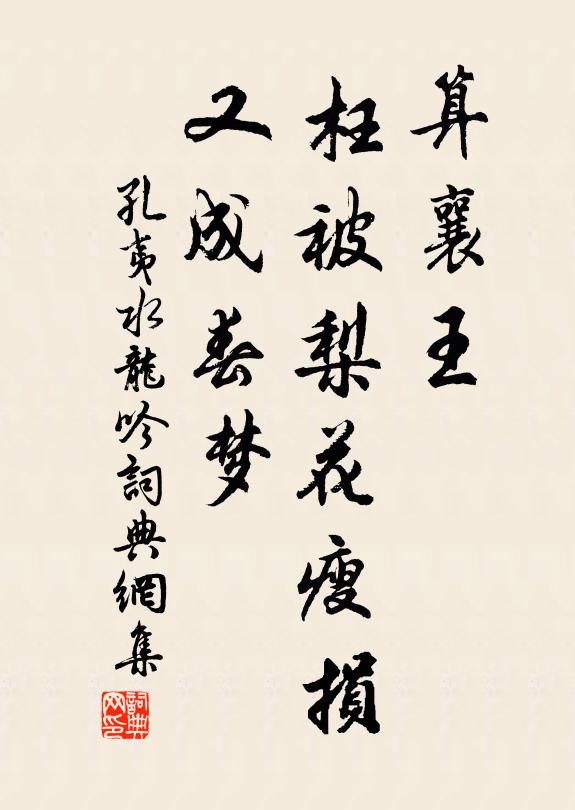 算襄王
枉被梨花瘦損
又成春梦
孔夷水龍吟詞典網集
詞典网印